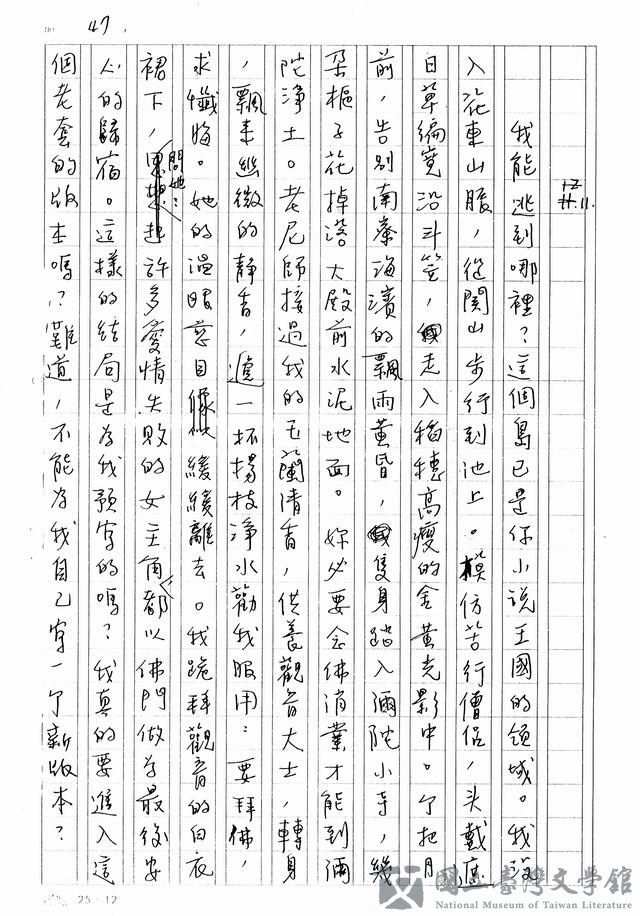 47.
我能逃到哪裡?這個島已是你小說王國的領域。我設
入花東山脈,從関山步行到池上。模仿苦行僧侶,头戴遮
日草編寬沿斗笠,走入稻穗高瘦的金黃光影中。个把月
前,告别南寮海濱的飄雨黃昏,隻身踏入彌陀小寺,幾
朵梔子花掉落大殿前水泥地面。妳必要念佛消業才能到彌
陀净土。老尼師接過我的玉蘭清香,供養觀音大士,轉身
,飄来幽微的静香,遞一杯揚枝净水勸我服用:要拜佛,
求懺悔。她的温眼慈目緩緩離去。我跪拜觀音的白衣
裙下,問她:許多愛情失敗的女主角都以佛門做为最後安
心的歸宿。這樣的结局是为我預定的嗎?我真的要進入這
個老套的版本嗎?難道,不能为我自己寫一个新版本?
25×12
國立臺灣文學館
National Museum of Taiwan Literature